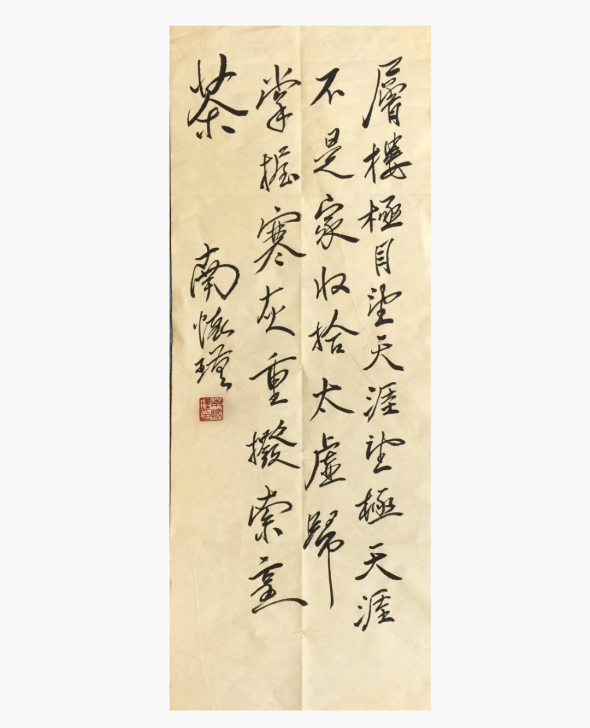 層樓極目望天涯望極天涯
不是家收拾太虛歸
掌握寒灰重撥索烹
茶
南懷瑾